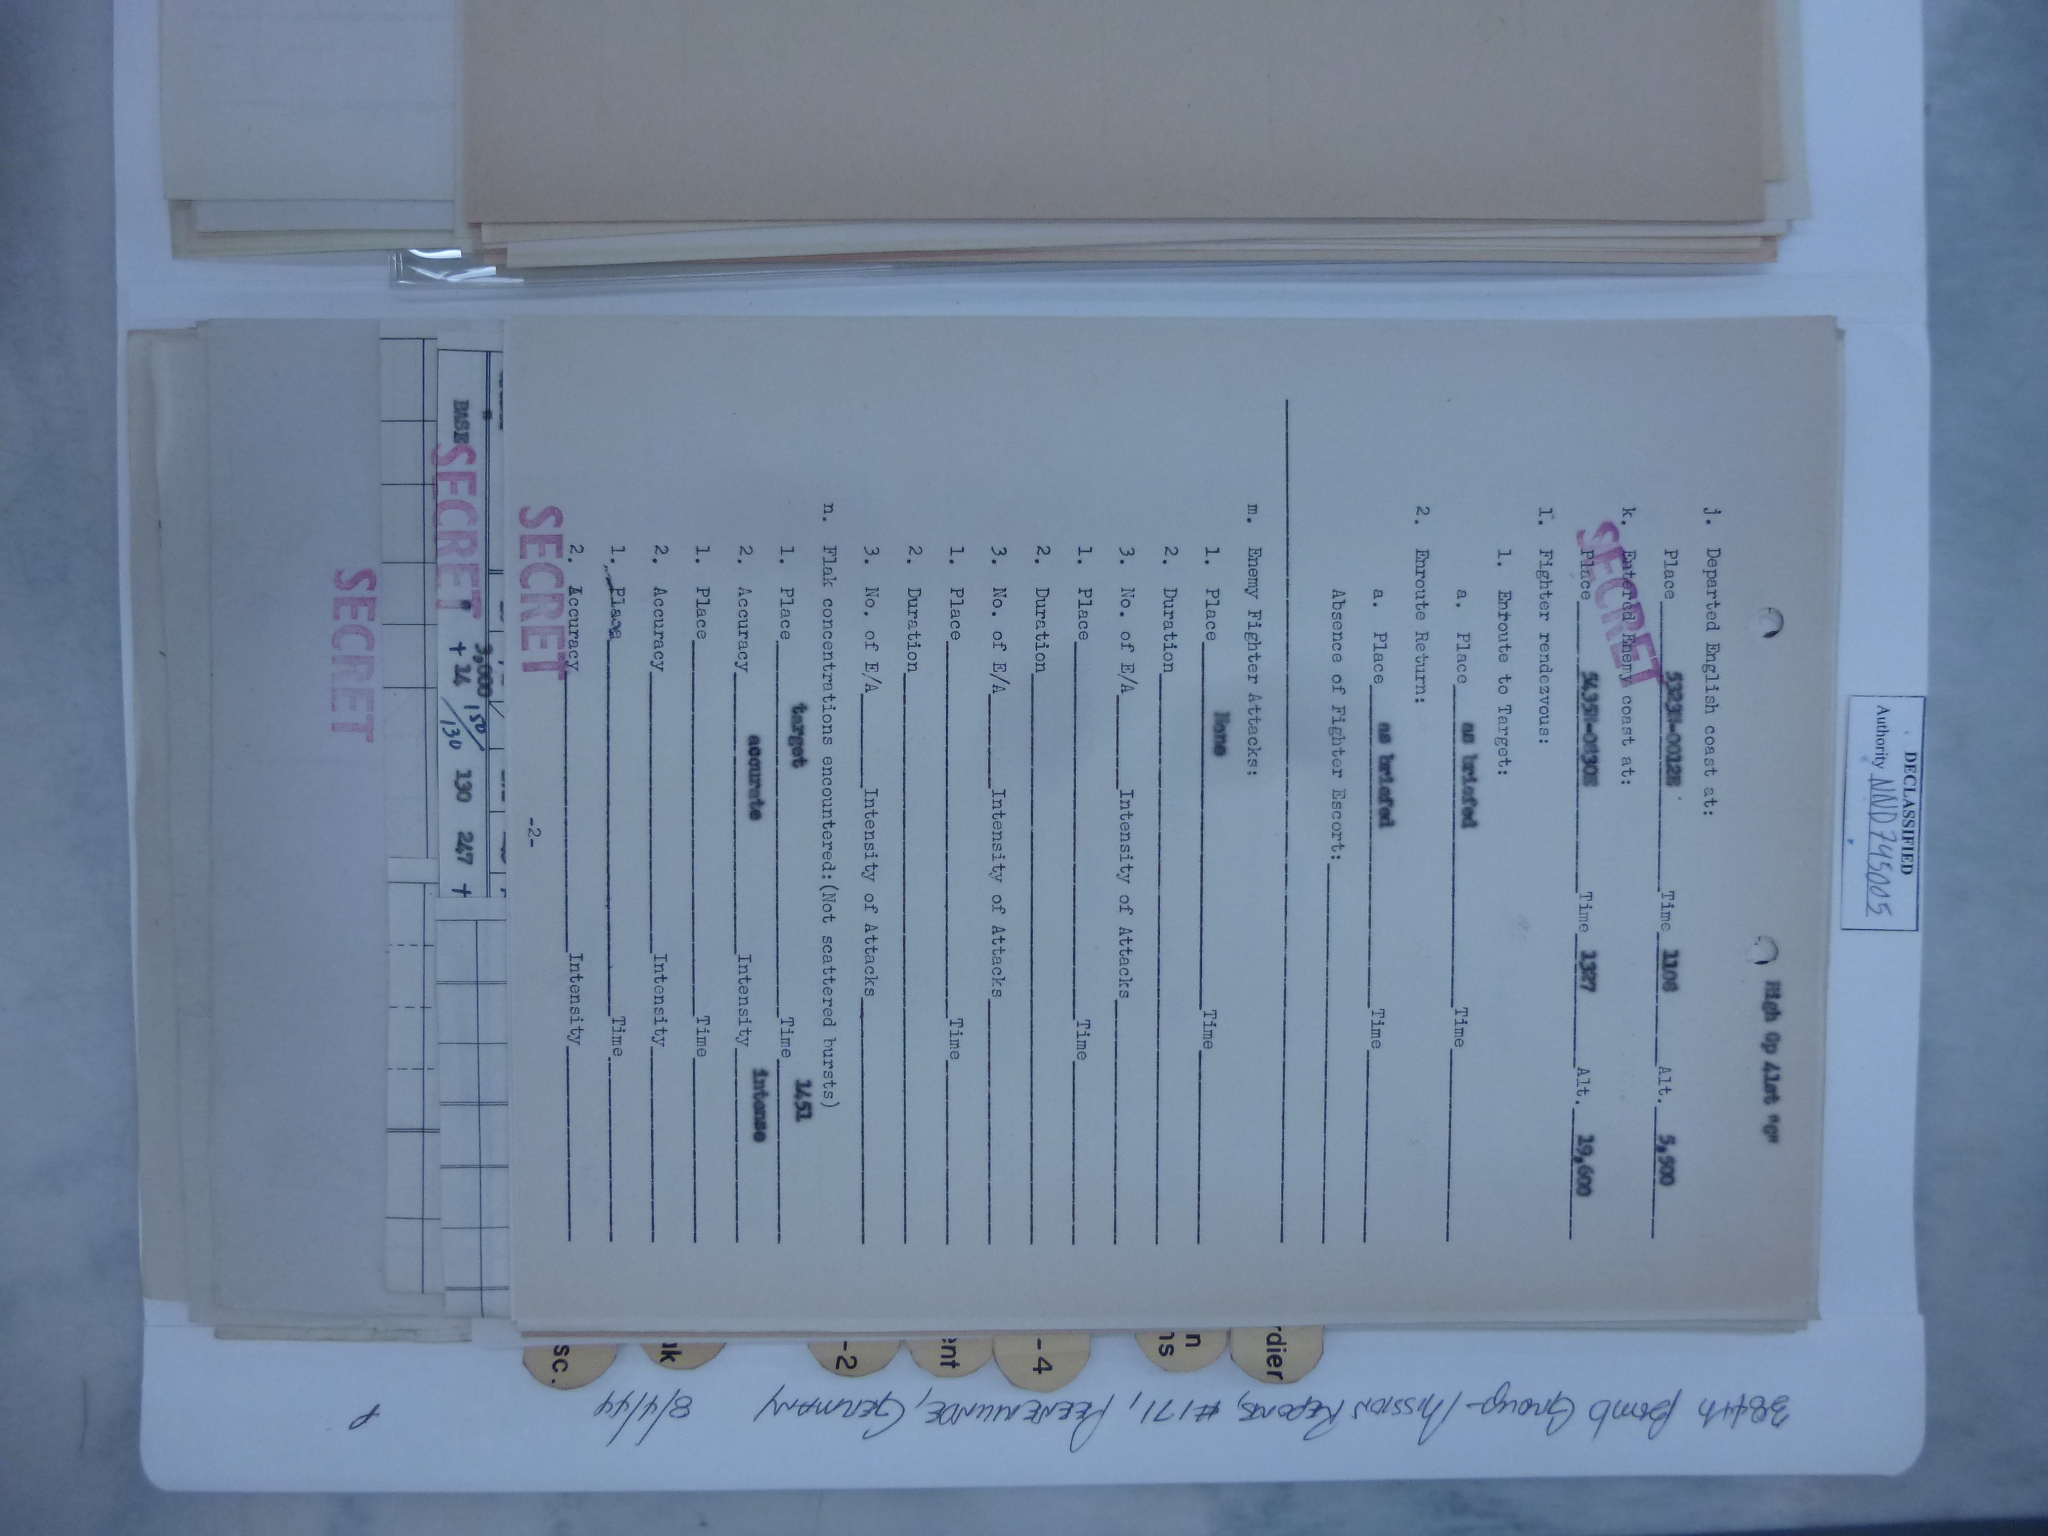 DECLASSIFIED
Authority NND 745005
High Gp 41st "C"
j. Departed English coast at:
Place 5323N-0012E Time 1108 Alt. 5,500
k. Entered Enemy coast at:
Place 5435N-0830E Time 1327 Alt. 19,600
SECRET
l. Fighter rendezvous:
1. Enroute to Target:
a. Place as briefed Time
2. Enroute Return:
a. Place as briefed Time
Absence of Fighter Escort:
m. Enemy Fighter Attacks:
1. Place None Time
2. Duration
3. No. of E/A Intensity of Attacks
1. Place Time
2. Duration
3. No. of E/A Intensity of Attacks
1. Place Time
2. Duration
3. No. of E/A Intensity of Attacks
n. Flak concentrations encountered:(Not scattered bursts)
1. Place target Time 1451
2. Accuracy accurate Intensity intense
1. Place Time
2. Accuracy Intensity
1. Place Time
2. Accuracy Intensity
SECRET
-2-
3,000 150/130
BASE + 14 130 247 +
SECRET
SECRET
rdier
n
ns
-4
ent
-2
ak
sc.
384th Bomb Group-Mission Reports, #171, PEENEMUNDE, GERMANY 8/4/44